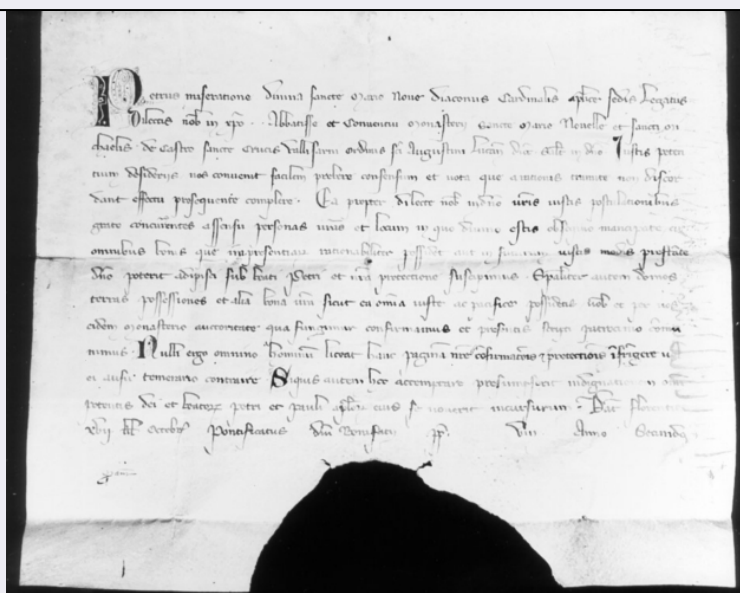 Petrus miseratione divina sancte Marie Nove diaconus Cardinalis aplice sedis Legatus
Dilectis nob in xpo .. Abbatisse et Conventui Monasterii Sancte Marie Novelle et sancti Mi
chaelis de Castro sancte Crucis Vallisarni ordinis sci Augustini Lucan dioc salt in dno Iustis peten
tium desideriis nos convenit facilem prebere consensum et vota que a rationis tramite non discor
dant effectu prosequente complere. Ea propter dilecte nob in dno vris iustis postulationibus
grato concurrentes assensu personas vras et locum in quo divino estis obsequio mancipate cum
omnibus bonis que inpresentiarum rationabiliter iustis modis prestante
dno poterit adipisci sub beati Petri et nra protectione suscipimus. Spaliter autem domos
terras possessiones et alia bona vra sicut ea omnia iuste ac pacifice possidetis vob et per
eidem Monasterio auctoritate qua fungimur confirmamus et presentis scripti patrocinio comu
nimus. Nulli ergo omnino hominum liceat hanc paginam nre confirmacois et protectiois infrigere
ei ausu temerario contraire Siquis autem hoc attemptare presumpserit indignationem
potentis dei et beatorum Petri et Pauli aplor eius se noverit incursurum. Dat Florentie
kl Octobr Pontificatus dni Bonifatii pp. VIII Anno Secundo